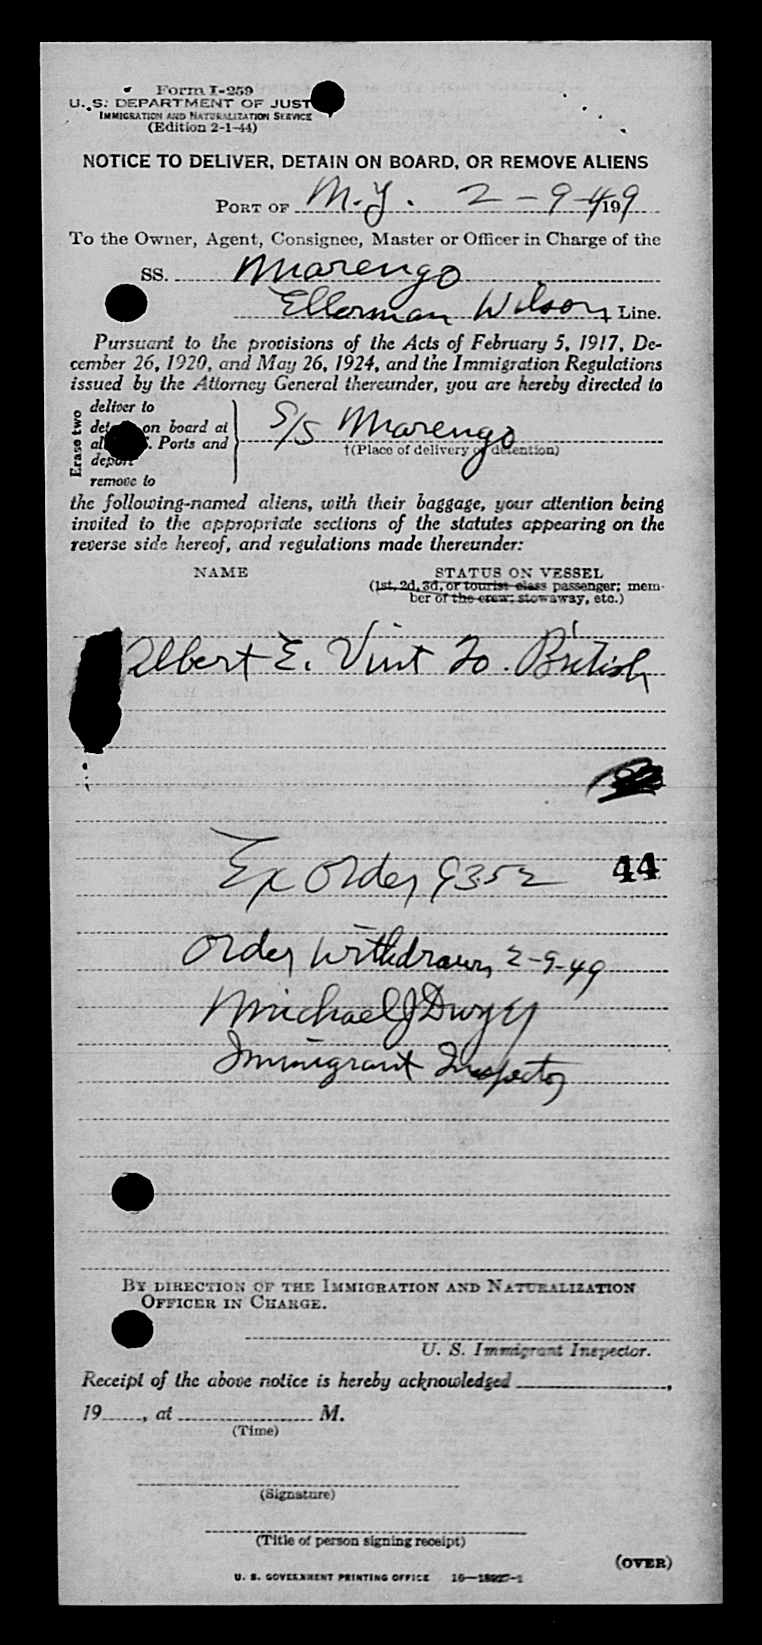 Form I-259
U. S. DEPARTMENT OF JUST
IMMIGRATION AND NATURALIZATION SERVICE
(Edition 2-1-44)
NOTICE TO DELIVER, DETAIN ON BOARD, OR REMOVE ALIENS
PORT OF N.Y. 2-9-49 19
To the Owner, Agent, Consignee, Master or Officer in Charge of the
SS. Marengo
Ellerman Wilson Line.
Pursuant to the provisions of the Acts of February 5, 1917, De-
cember 26, 1920, and May 26, 1924, and the Immigration Regulations
issued by the Attorney General thereunder, you are hereby directed to
Erase two
deliver to
det on board at
al S. Ports and
deport
remove to
S/S Marengo
†(Place of delivery or detention)
the following-named aliens, with their baggage, your attention being
invited to the appropriate sections of the statutes appearing on the
reverse side hereof, and regulations made thereunder:
NAME STATUS ON VESSEL
(1st, 2d, 3d, or tourist class passenger; mem-
ber of the crew; stowaway, etc.)
Albert E. Vint 20. British
Ex Order 9352 44
Order Withdrawn 2-9-49
Michael J Dwyer
Immigrant Inspector
BY DIRECTION OF THE IMMIGRATION AND NATURALIZATION
OFFICER IN CHARGE.
U. S. Immigrant Inspector.
Receipt of the above notice is hereby acknowledged ,
19 , at M.
(Time)
(Signature)
(Title of person signing receipt)
(OVER)
U. S. GOVERNMENT PRINTING OFFICE 16—18927-1